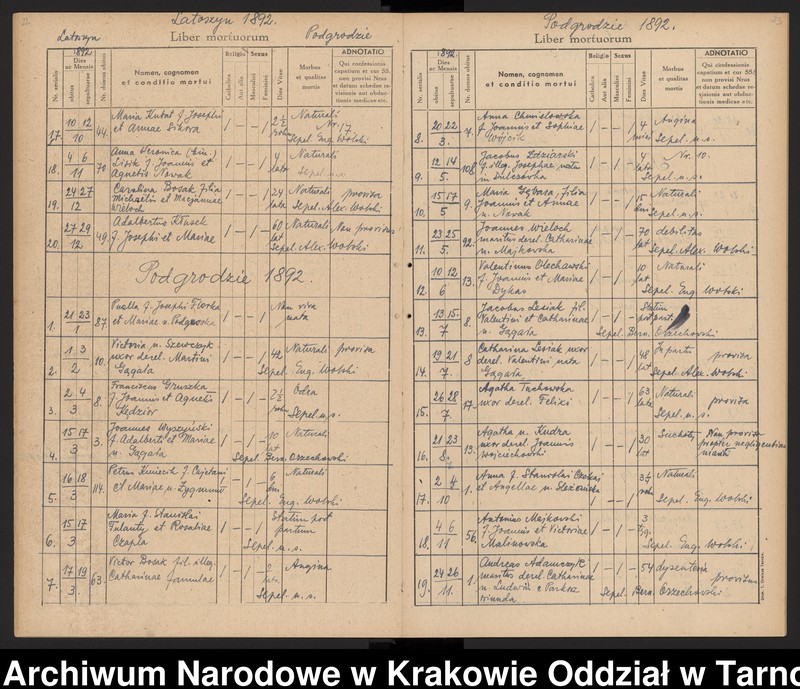 Latoszyn 1892.
Latoszyn
Liber mortuorum
Podgrodzie
Nr. serialis
1892
Dies ac Mensis
obitus
sepulturae
Nr. domus obitus
Nomen, cognomen
et conditio mortui
Religio
Catholica
Aut alia
Sexus
Masculini
Feminini
Dies Vitae
Morbus
et qualitas
mortis
ADNOTATIO
Qui confessionis
capatium et cur SS.
non provisi Nrus
et datum schedae re-
visionis aut obduc-
tionis medicae etc.
17. 10 12 10 44. Maria Kutat f. Josephi
et Annae Sikora
1 — — 1 2 1/2 Naturali
Nr. 17
Sepel. Eug. Wolski
18. 4 6 11 70 Anna Veronica (bin.)
Lisik f. Joannis et
Agnetis Nowak
1 — — 1 4 lata Naturali
Sepel. u. s.
19. 24 27 12 Carolina Bosak filia
Michaelis et Marjannae
Wieloch
1 — — 1 24 lata Naturali provisa
Sepel. Alex. Wolski
20. 27 29 12 49. Adalbertus Kłusek
f. Josephi et Mariae
1 — 1 — 60 lat Naturali Non provisus
Sepel. Alex. Wolski
Podgrodzie 1892.
1. 21 23 1 87. Puella f. Josephi Florka
et Mariae n. Podgórska
1 — — 1 Non viva
nata
2. 1 3 2 10. Victoria n. Szewczyk
uxor derel. Martini
Gągala
1 — — 1 42 Naturali provisa
Sepel. Eug. Wolski
3. 2 4 3 8. Franciscus Gruszka
f. Joannis et Agnetis
Kędzior
1 — 1 — 2 1/2 Odra
Sepel. u. s.
4. 15 17 3 3. Joannes Wyszyński
f. Adalberti et Mariae
n. Gągala
1 — 1 — 10 lat Naturali
Sepel. Bern. Orzechowski
5. 16 18 3 114. Petrus Kmiecik f. Cajetani
et Mariae n. Zygmunt
1 — 1 — 6 dni Naturali
Sepel. Eug. Wolski
6. 15 17 3 Maria f. Stanislai
et Rosaliae
Czapla
1 — — 1 Statim post
partum
Sepel. u. s.
7. 17 19 3. 63. Victor Bosak fil. illeg.
Catharinae famulae
1 — 1 — 2 lata Angina
Sepel. u. s.
Podgrodzie 1892.
23
Liber mortuorum
Nr. serialis
1892
Dies ac Mensis
obitus
sepulturae
Nr. domus obitus
Nomen, cognomen
et conditio mortui
Religio
Catholica
Aut alia
Sexus
Masculini
Feminini
Dies Vitae
Morbus
et qualitas
mortis
ADNOTATIO
Qui confessionis
capatium et cur SS.
non provisi Nrus
et datum schedae re-
visionis aut obduc-
tionis medicae etc.
8. 20 22 3. 7. Anna Chmielowska
f. Joannis et Sophiae
Wójcik
1 — — 1 4 mies Angina
Sepel. u. s.
9. 12 14 5. 108 Jacobus Zdziarski
f. illeg. Josephae nata
in Dulczówka
1 — 1 — 4 lata Nr. 10.
Sepel. u. s.
10. 15 17 5 9. Maria Gębara, filia
Joannis et Annae
n. Nowak
1 — — 1 15 dni Naturali
Sepel. u. s.
11. 23 25 5. 92. Joannes Wieloch
maritus derel. Catharinae
n. Majkowska
1 — 1 — 70 lat debilitas
Sepel. Alex. Wolski
12. 10 12 6 13. Valentinus Olechawski
f. Joannis et Mariae
Dykas
1 — 1 — 10 lat Naturali
Sepel. Eug. Wolski
13. 13 15. 7 8. Jacobus Lesiak fil.
Valentini et Catharinae
n. Gągala
1 — 1 — Statim
post part.
Sepel. Bern. Orzechowski
14. 19 21 7. 8 Catharina Lesiak uxor
derel. Valentini nata
Gągala
1 — — 1 48 lat In partu provisa
Sepel. Alex. Wolski
15. 26 28 7. 17. Agatha Tuchowska
uxor derel. Felixi
1 — — 1 63 lata Naturali provisa
Sepel. u. s.
16. 21 23 8. 13. Agatha n. Kudra
uxor derel. Joannis
Wojciechowski
1 — — 1 30 lat Suchoty Non provisa
propter negligentiam
17. 2 4 10 1. Anna f. Stanislai
et Angellae n.
1 — — 1 Naturali
Sepel. Eug. Wolski
18. 4 6 11 56. Antonius Majkowski
f. Joannis et Victoriae
Malinowska
1 — 1 — 3
Sepel. Eug. Wolski
19. 24 26 11. 1. Andreas Adamczyk
maritus derel. Catharinae
n. Ludwin e Parkosz
oriunda
1 — 1 — 54 dysenteria provisus
Sepel. Bern. Orzechowski
Archiwum Narodowe w Krakowie Oddział w Tarno